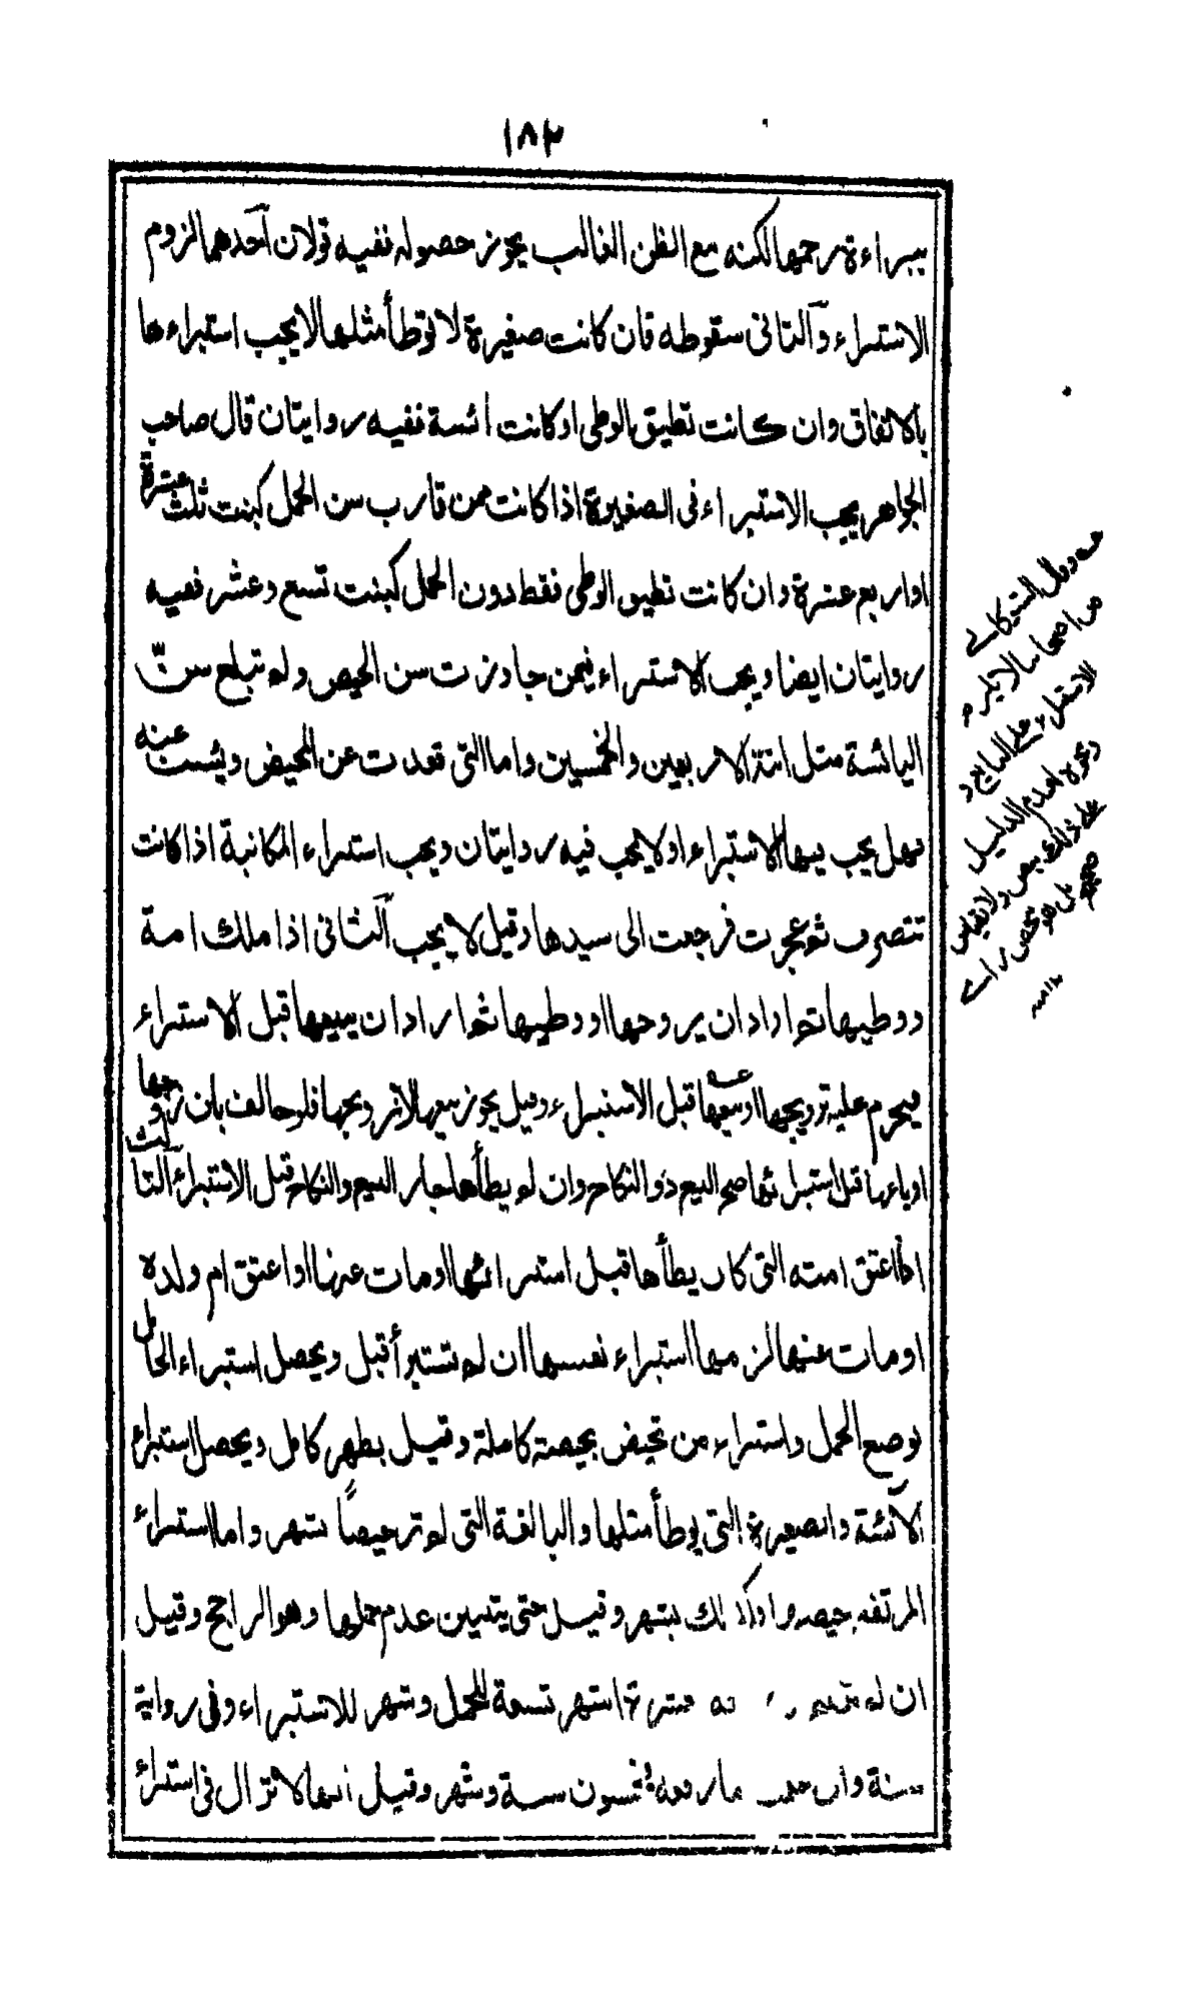 ١٨٢
ببراءة رحمها لكنه مع الظن الغالب يجوز حصوله ففيه قولان آحدهما لزوم
الاستبراء وآلثانى سقوطه فان كانت صغيرة لا توطأ مثلها لا يجب استبراءها
بالاتفاق وان كانت تطيق الوطى اوكانت أئسة ففيه روايتان قال صاحب
الجواهر يجب الاستبراء فى الصغيرة اذا كانت ممن قارب سن الحمل كبنت ثلث عشرة
اواربع عشرة وان كانت تطيق الوطى فقط دون الحمل كبنت تسع وعشر ففيه
روايتان ايضا ويجب الاستبراء فيمن جاوزت سن الحيض ولم تبلغ سن
اليائسة مثل ابنة الاربعين والخمسين واما التى قعدت عن المحيض ويئست عنه
فهل يجب فيها الاستبراء اولا يجب فيه روايتان ويجب استبراء المكاتبة اذا كانت
تتصرف ثم عجزت فرجعت الى سيدها وقيل لا يجب آلثانى اذا ملك امة
ووطيها ثم اراد ان يزوجها او وطيها ثم اراد ان يبيعها قبل الاستبراء
فيحرم عليه تزويجها اوبيعها قبل الاستبراء وقيل يجوز بيعها لا تزويجها فلو خالف بان زوجها
اوباعها قبل استبرائها صح البيع دو النكاح وان لم يطأها جاز البيع والنكاح قبل الاستبراء آلثالث
اذا اعتق امته التى كان يطأها قبل استبرائها اومات عنها او اعتق ام ولده
اومات عنها لزمها استبراء نفسها ان لم تستبرأ قبل ويحصل استبراء الحامل
بوضع الحمل واستبراء من تحيض بحيضة كاملة وقيل بطهر كامل ويحصل استبراء
الآئسة والصغيرة التى يوطأ مثلها والبالغة التى لم تر حيضًا بشهر واما استبراء
المرتفع حيضها بشهر وقيل حتى يتبين عدم حملها وهو الراجح وقيل
ان لم اشهر تسعة للحمل وشهر للاستبراء وفى رواية
سنة وان ما رفعه فخمسون سنة وشهر وقيل انها لا تزال فى استبراء
عسه وقال الشوكانى
من اصحابنا لا يلزم
الاستبراء على البايع و
نحوه لعدم الدليل
على ذالك بنص ولا بقياس
صحيح بل هو محض راى
١٢منه